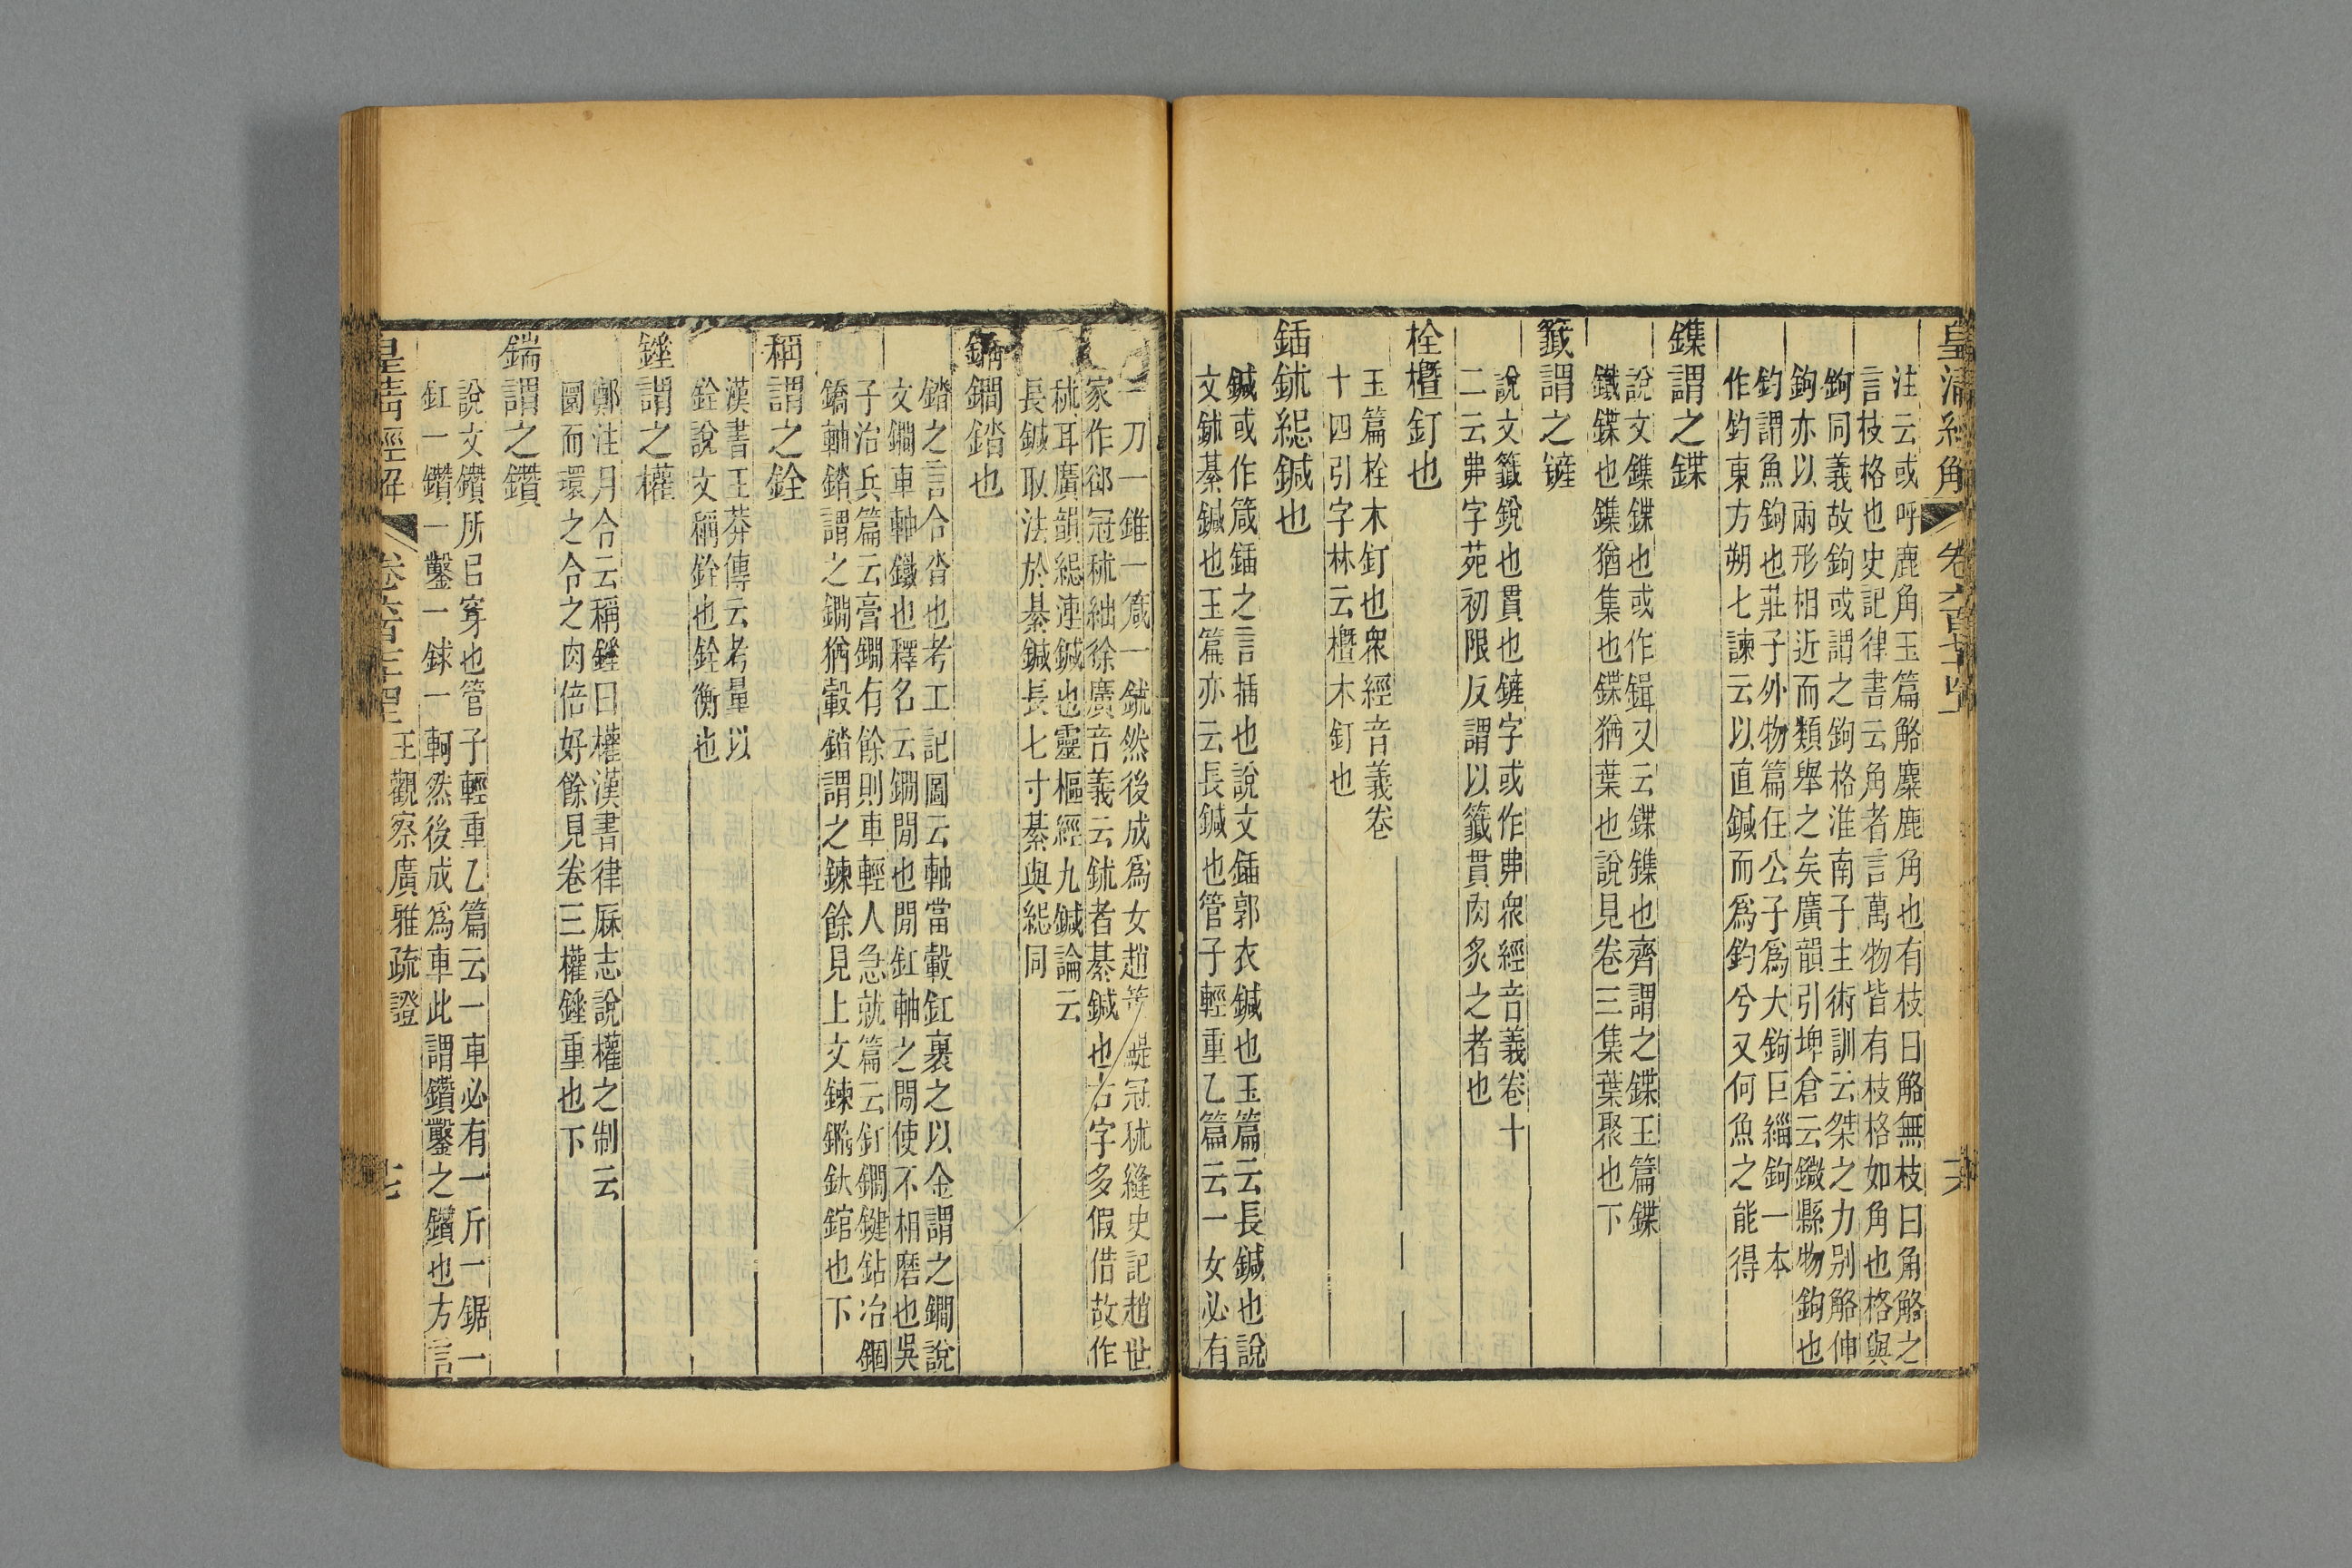 注云或呼鹿角玉篇觡麋鹿角也有枝曰觡無枝曰角觡之
言枝格也史記律書云角者言萬物皆有枝格如角也格與
鉤同義故鉤或謂之鉤格淮南子主術訓云桀之力别觡伸
鉤亦以兩形相近而類舉之矣廣韻引埤倉云鐖縣物鉤也
釣謂魚鉤也莊子外物篇任公子爲大鉤巨緇鉤一本
作釣東方朔七諫云以直鍼而爲釣兮又何魚之能得
鏶謂之鍱
說文鏶鍱也或作鍓又云鍱鏶也齊謂之鍱玉篇鍱
鐵鍱也鏶猶集也鍱猶葉也說見卷三集葉聚也下
籤謂之鏟
說文籤銳也貫也鏟字或作弗衆經音義卷十
二云弗字苑初限反謂以籤貫肉炙之者也
栓櫼釘也
玉篇栓木釘也衆經音義卷
十四引字林云櫼木釘也
鍤鉥緦鍼也
鍼或作箴鍤之言插也說文鍤郭衣鍼也玉篇云長鍼也說
文鉥綦鍼也玉篇亦云長鍼也管子輕重乙篇云一女必有
一刀一錐一箴一鉥然後成爲女趙 冠秫縫史記趙世
家作郤冠秫絀徐廣音義云鉥者綦鍼也古字多假借故作
秫耳廣韻緦連鍼也靈樞經九鍼論云
長鍼取法於綦鍼長七寸綦與緦同
鐗錔也
錔之言合沓也考工記圖云軸當轂釭裹之以金謂之鐗說
文鐗車軸鐵也釋名云鐗閒也閒釭軸之閒使不相磨也吳
子治兵篇云膏鐗有餘則車輕人急就篇云釭鐗鍵鉆冶錮
鐈軸錔謂之鐗猶轂錔謂之鍊餘見上文鍊鐹釱錧也下
稱謂之銓
漢書王莽傳云考量以
銓說文稱銓也銓衡也
錘謂之權
鄭注月令云稱錘曰權漢書律厤志說權之制云
圜而環之令之肉倍好餘見卷三權錘重也下
鍴謂之鑽
說文鑽所㠯穿也管子輕重乙篇云一車必有一斤一鋸一
釭一鑽一鑿一銶一軻然後成爲車此謂鑽鑿之鑽也方言
皇清經解
王觀察廣雅疏證
十七